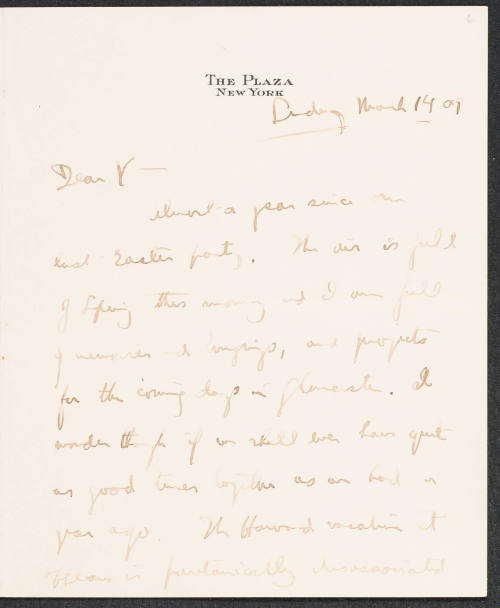 THE PLAZA
NEW YORK
Sunday March 14 09
Dear V —
almost a year since our
last Easter party. The air is full
of Spring this morning and I am full
of memories and longings, and projects
for the coming days in Gloucester. I
wonder though if we shall ever have quite
as good times together as we had a
year ago. The Harvard vacation it
appears is puritanically disassociated